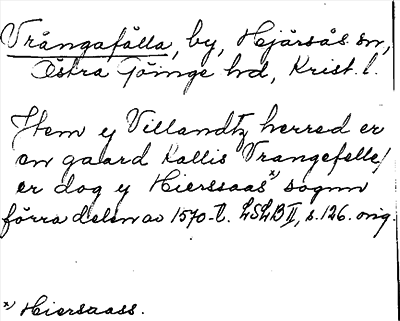 Vrångafälla, by, Hjärsås sn,
Östra Göinge hd, Krist. l.
Hem y Villandtz herred er
en gaard Kallis Vrangefelle/
er dog y Hierssaas x) sognn
förra delen av 1570-t. LSLB II, s. 126. orig.
x) Hiersaass.